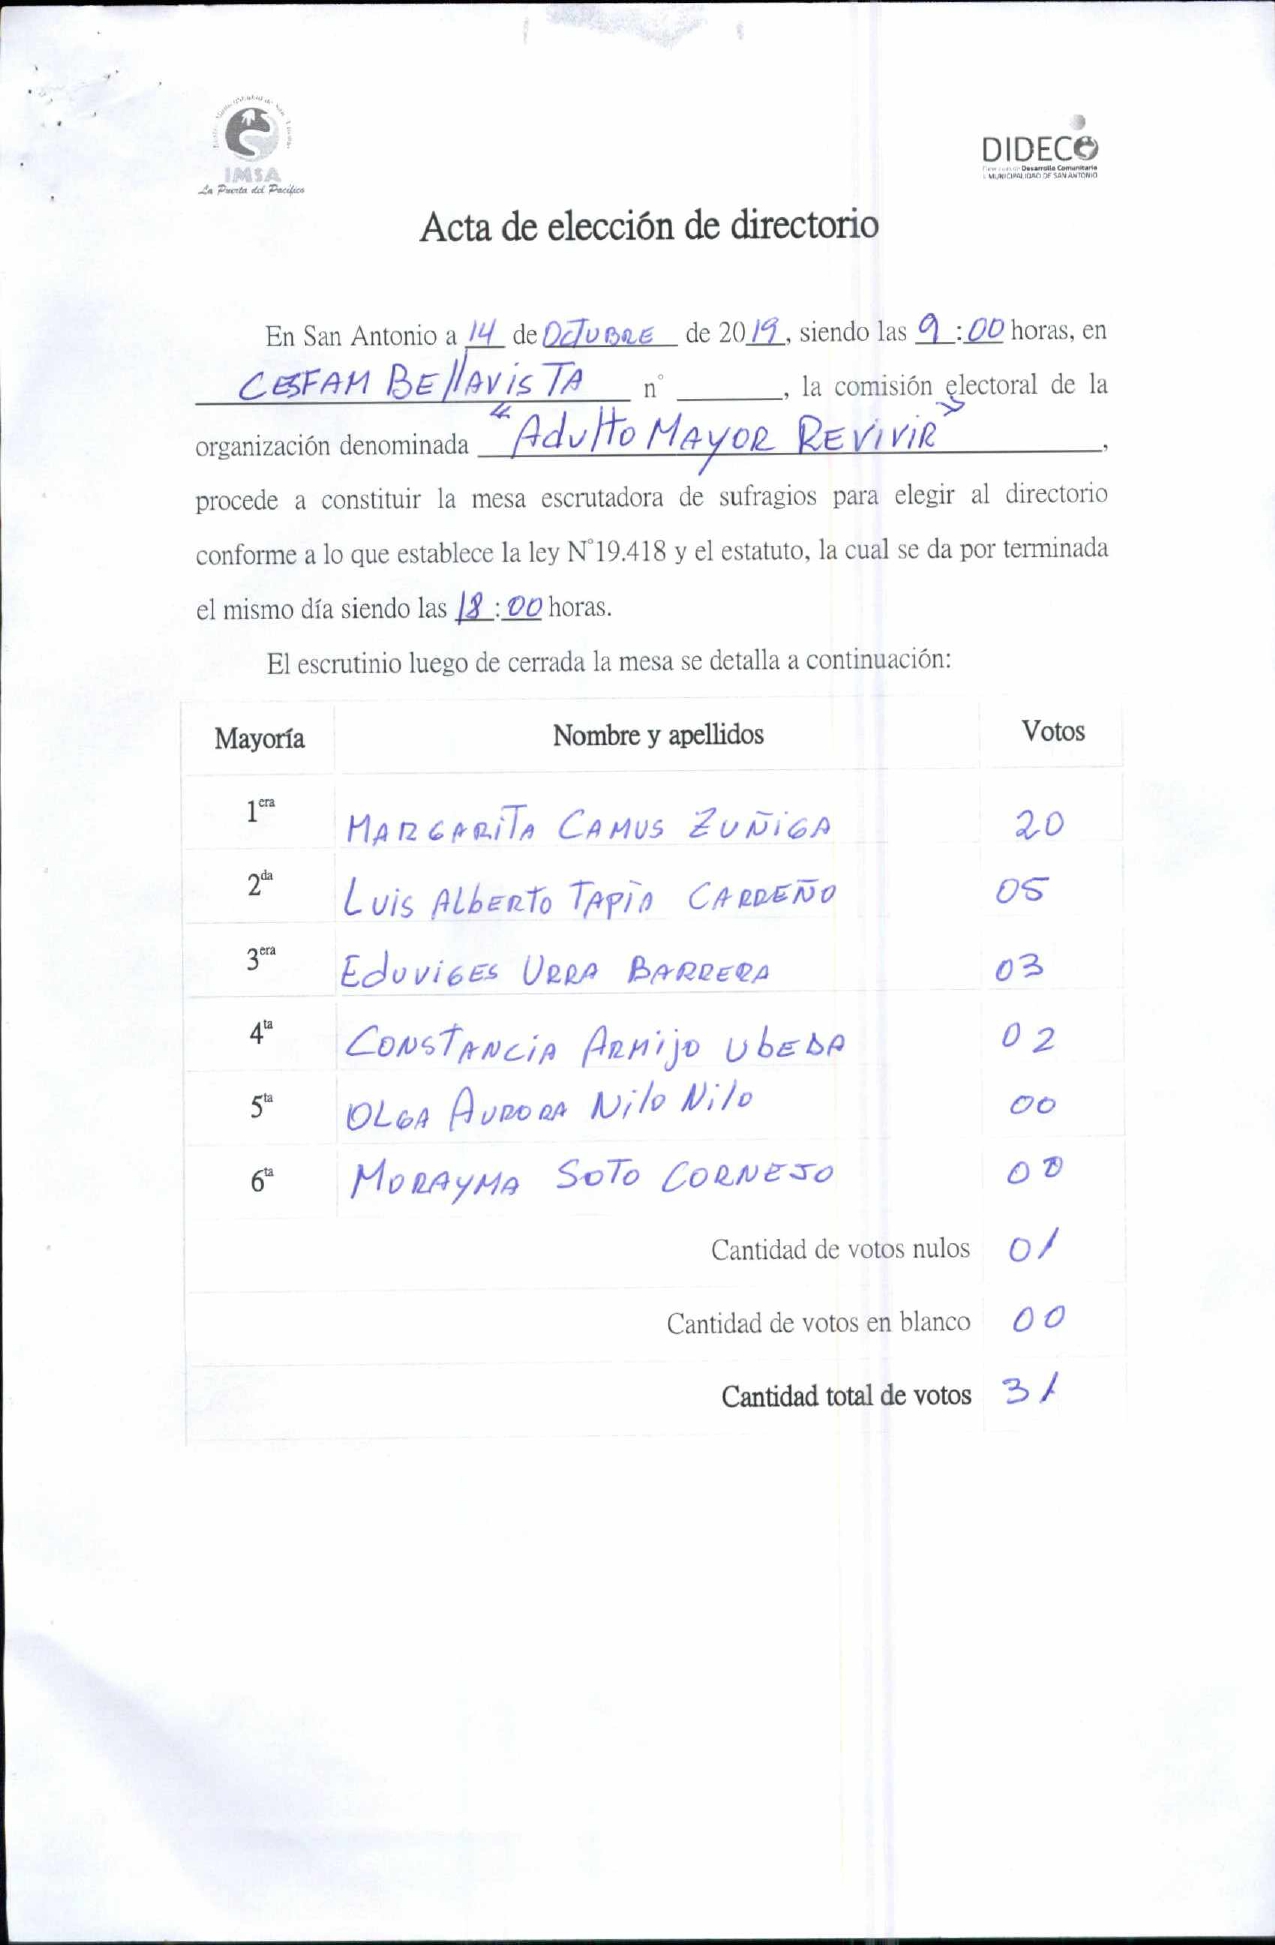 IMSA
La Puerta del Pacífico
DIDECO
Desarrollo Comunitario
I. MUNICIPALIDAD DE SAN ANTONIO
Acta de elección de directorio
En San Antonio a 14 de OCTUBRE de 2019, siendo las 9:00 horas, en
CESFAM BEllAVISTA n° ______, la comisión electoral de la
organización denominada "AdultO MAYOR REViViR",
procede a constituir la mesa escrutadora de sufragios para elegir al directorio
conforme a lo que establece la ley N°19.418 y el estatuto, la cual se da por terminada
el mismo día siendo las 18:00 horas.
El escrutinio luego de cerrada la mesa se detalla a continuación:
Mayoría Nombre y apellidos Votos
1era MARGARITA CAMUS ZUÑIGA 20
2da LUIS ALBERTO TAPIA CARREÑO 05
3era EDUVIGES URRA BARRERA 03
4ta CONSTANCIA ARMIJO UBEDA 02
5ta OLGA AURORA NILO NILO 00
6ta MORAYMA SOTO CORNEJO 00
Cantidad de votos nulos 01
Cantidad de votos en blanco 00
Cantidad total de votos 31